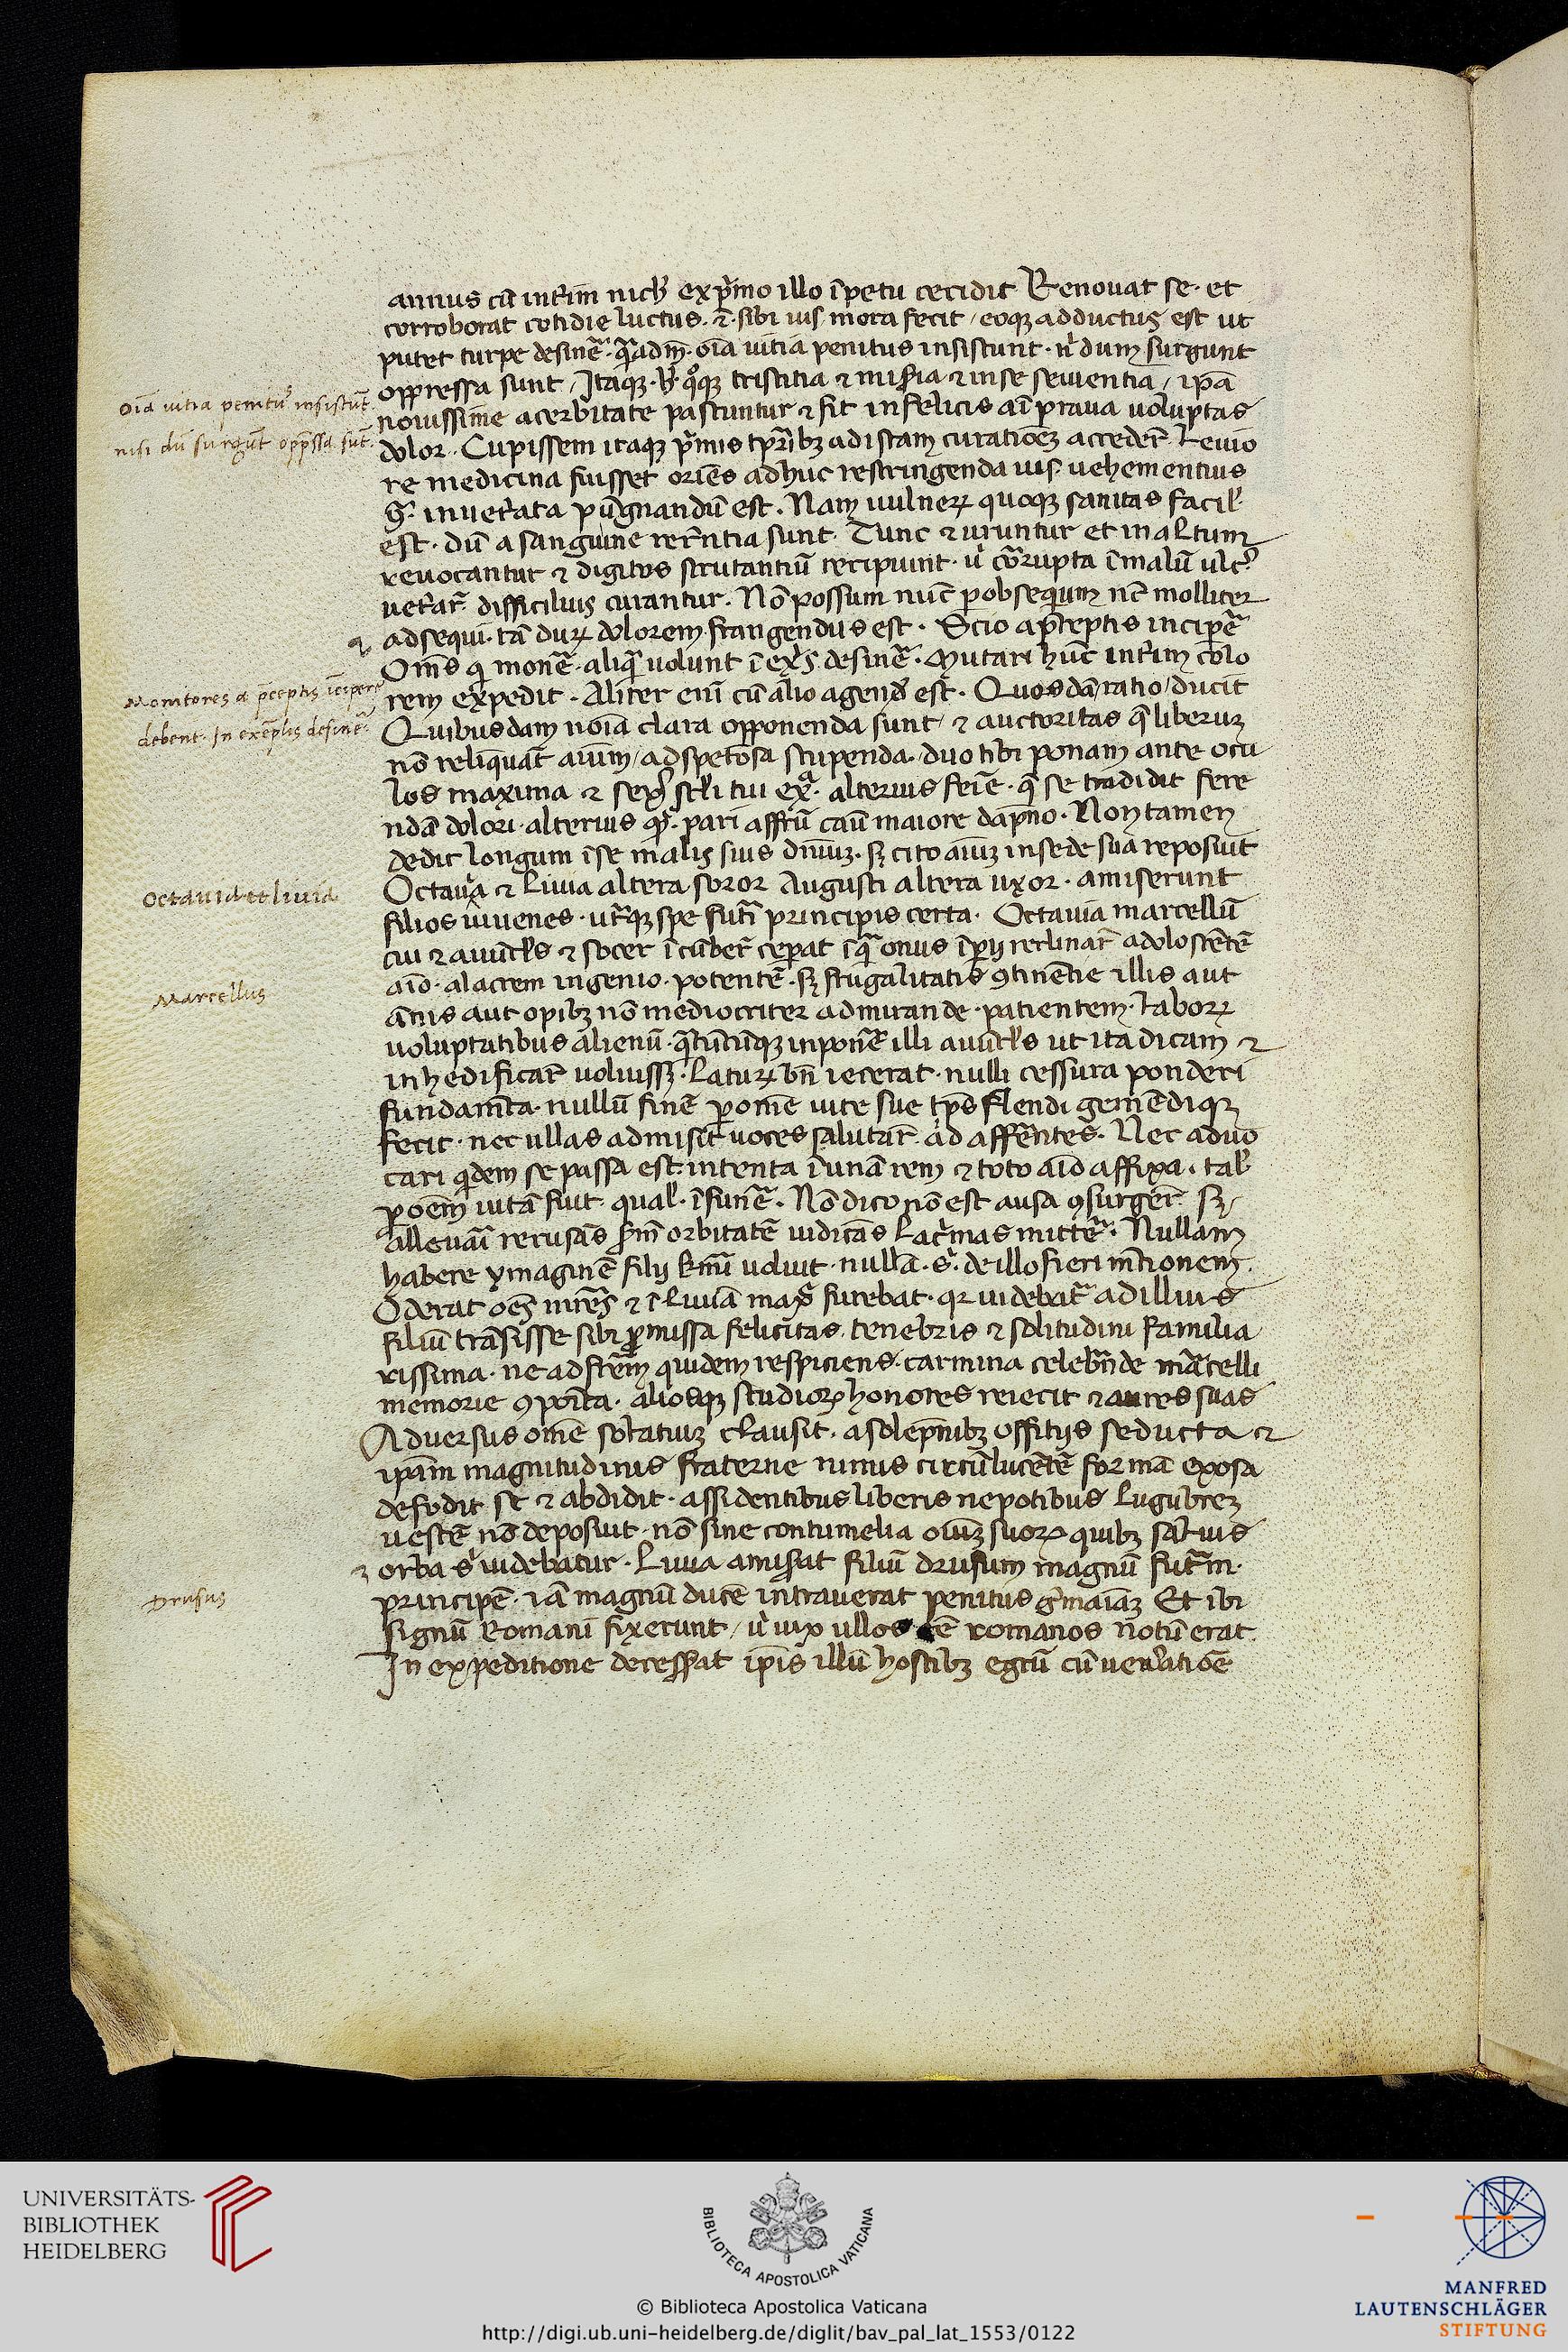 annus cū int̄im nichꝉ ex p̄mo illo īpetu cecidit Renouat se· et
corroborat cotidie luctus· ⁊· sibi ius mora fecit / eoqꝫ adductus est ut
putet turpe desiner̄· q̄admͦ· oīa uitia penitus insistunt· nͥ dum surgunt
oppressa sunt / Itaqꝫ· h̄· qͦqꝫ tristitia ⁊ mis̄ia ⁊ in se seuientia / ip̄a
nouissime acerbitate pascuntur ⁊ fit infelicis aī praua uoluptas
dolor· Cupissem itaqꝫ p̄mis tp̄ribꝫ ad istam curatiōeꝫ acceder̄· Leuio
re medicina fuisset oriēs adhuc restringenda uis uehementius
ꝯ̄· inuet̄ata pūgnandū est· Nam uulneꝝ quoqꝫ sanitas facil̄
est· dū a sanguine rec̄ntia sunt· Tunc ⁊ uruntur et in altum
reuocantur ⁊ digitos scrutantiū recipiunt· uͥ cōrupta ī malū ulc̄ꝰ
uet̄ar̄ difficilius curantur· Nō possum nūc p̱ obsequium nc̄ molliter
adsequi· tā duꝝ dolorem frangendus est· Scio a p̄ceptis inciper̄
Om̄s qͥ moner̄· aliqͣ uolunt ī exͥs desiner̄· Mutari hūc int̄im cōlo
rem expedit· Aliter enī cū alio agendū est· Quosdā ratio ducit
Quibusdam noīa clara opponenda sunt / ⁊ auctoritas q̄ liberuꝫ
nō relīquat aīum / ad spetōsa stupenda· duo tibi ponam ante ocu
los maxima ⁊ sexꝰ ⁊ sc̄li tui exͣ· alterius feīe· q̄ se tradidit fere
ndā dolori· alterius q̄· pari afftū caū maiore dāpno· Non tamen
dedit longum ī se malis suis dn̄iuꝫ· sꝫ cito aīuꝫ in sede sua reposuit
Octauia ⁊ Liuia altera soror Augusti altera uxor· amiserunt
filios iuuenes· ut̄qꝫ spe fut̄i principis certa· Octauia marcellū
cui ⁊ auūcl̄s ⁊ socer īcūber̄ cep̱at ī qͣ onus īp̱ij reclinar̄ adoloscētē
aīo· alacrem ingenio· potentē· sꝫ frugalitatis ꝯtinētie illis aut
ānis aut opibꝫ nō mediocriter admirande· patientem· Laboꝝ
uoluptatibus alienū· q̄tūcūqꝫ inponer̄ illi auūcl̄s ut ita dicam ⁊
inhedificar̄ uoluissꝫ· Latuꝝ bn̄ iecerat· nulli cessura ponderi
fundam̄ta· nullū finē p̱ om̄e uite sue tp̄s flendi gemēdiqꝫ
fecit· nec ullas admisit uoces salutar̄ ad affer̄ntes· Nec aduo
cari qͥdem se passa est· intenta ī unā rem ⁊ toto aīo affixa· tal̄
p̱ oēm uitā fuit· qual̄· ī funer̄· Nō dico nō est ausa ꝯsurger̄ sꝫ
alleuaī recusās s̄mͣ orbitatē iudicās lac̄mas mitter̄· Nullam
habere ymaginē filij kmī uoluit· nullā· sͥ· de illo fieri m̄tionem·
Oderat oēs mr̄es ⁊ ī Liuiā maxͤ furebat· qꝛ uidebat̄ ad illius
filiū trāsisse sibi p̄missa felicitas· tenebris ⁊ solitudini familia
rissima· ne ad fr̄em quidem respiciens· carmina celebr̄nde mārcelli
memorie ꝯpoīta· aliosqꝫ studioꝝ honores reiecit ⁊ aures suas
Aduersus om̄e solatiuꝫ clausit· a solēpnibꝫ offitijs seducta ⁊
ip̄am magnitudinis fraterne nimis circūlucētē formā exosa
defodit se ⁊ abdidit· assidentibus liberis nepotibus lugubreꝫ
uestē nō deposuit· nō sine contumelia oīuꝫ suoꝝ quibꝫ saluis
orba sͥ uidebatur· Liuia amis̄at filiū drusum magnū fut̄m·
principē· iā magnū ducē intrauerat penitus ḡmaīaꝫ Et ibi
signū Romani fixerunt / uͥ uix ullos ēē romanos notū erat·
In expeditione decess̄at ip̄is illū hostibꝫ egrū cū uen̄atiōe
Oīa uitia penitus insistūt
nisi dū surgūt opp̄ssa sūt·
Monitores a p̄ceptis īcipere
debent· In exēplis desiner̄
Octauia et liuia
Marcellus
Drusus
UNIVERSITÄTS-
BIBLIOTHEK
HEIDELBERG
BIBLIOTECA APOSTOLICA VATICANA
© Biblioteca Apostolica Vaticana
http://digi.ub.uni-heidelberg.de/diglit/bav_pal_lat_1553/0122
MANFRED
LAUTENSCHLÄGER
STIFTUNG